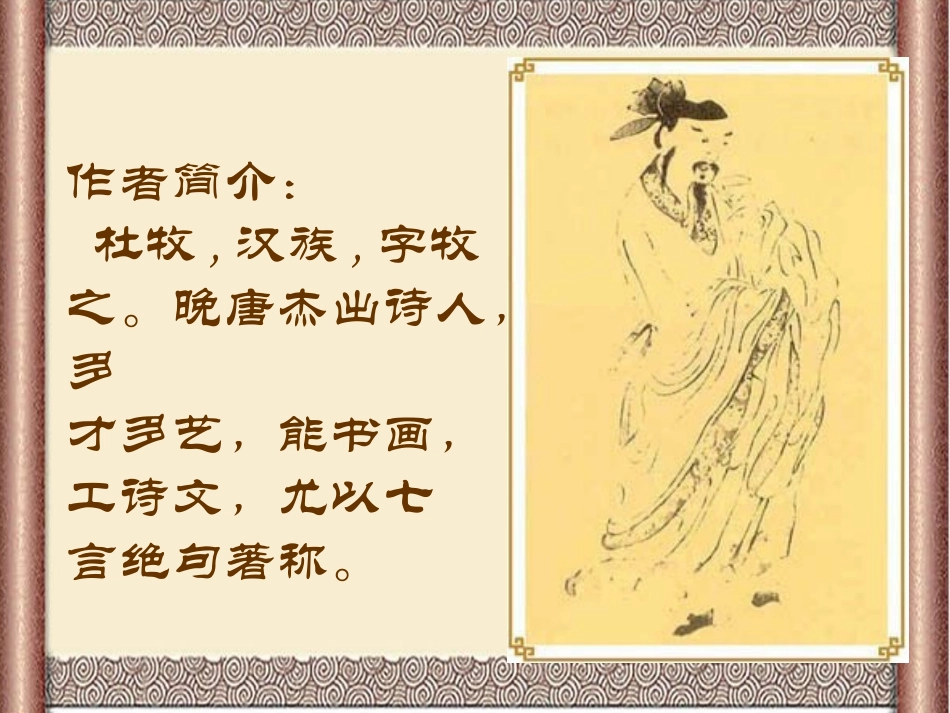 作者简介：
杜牧，汉族，字牧
之。晚唐杰出诗人，
多
才多艺，能书画，
工诗文，尤以七
言绝句著称。